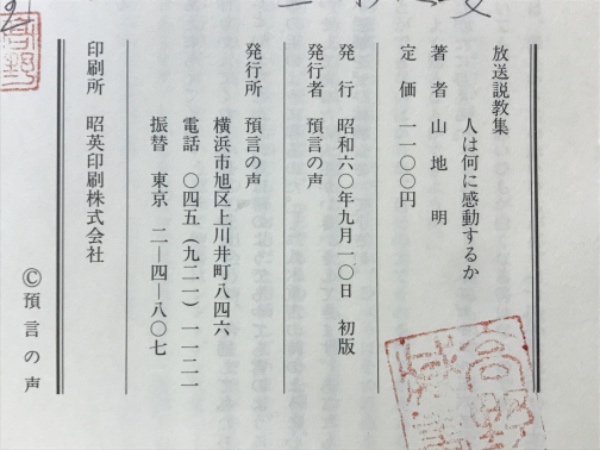 放送説教集
人は何に感動するか
著者 山地 明
定価 一一〇〇円
発行 昭和六〇年九月一〇日 初版
発行者 預言の声
発行所 預言の声
横浜市旭区上川井町八四六
電話 〇四五(九二一)一一二一
振替 東京 二―四―八〇七
印刷所 昭英印刷株式会社
Ⓒ預言の声